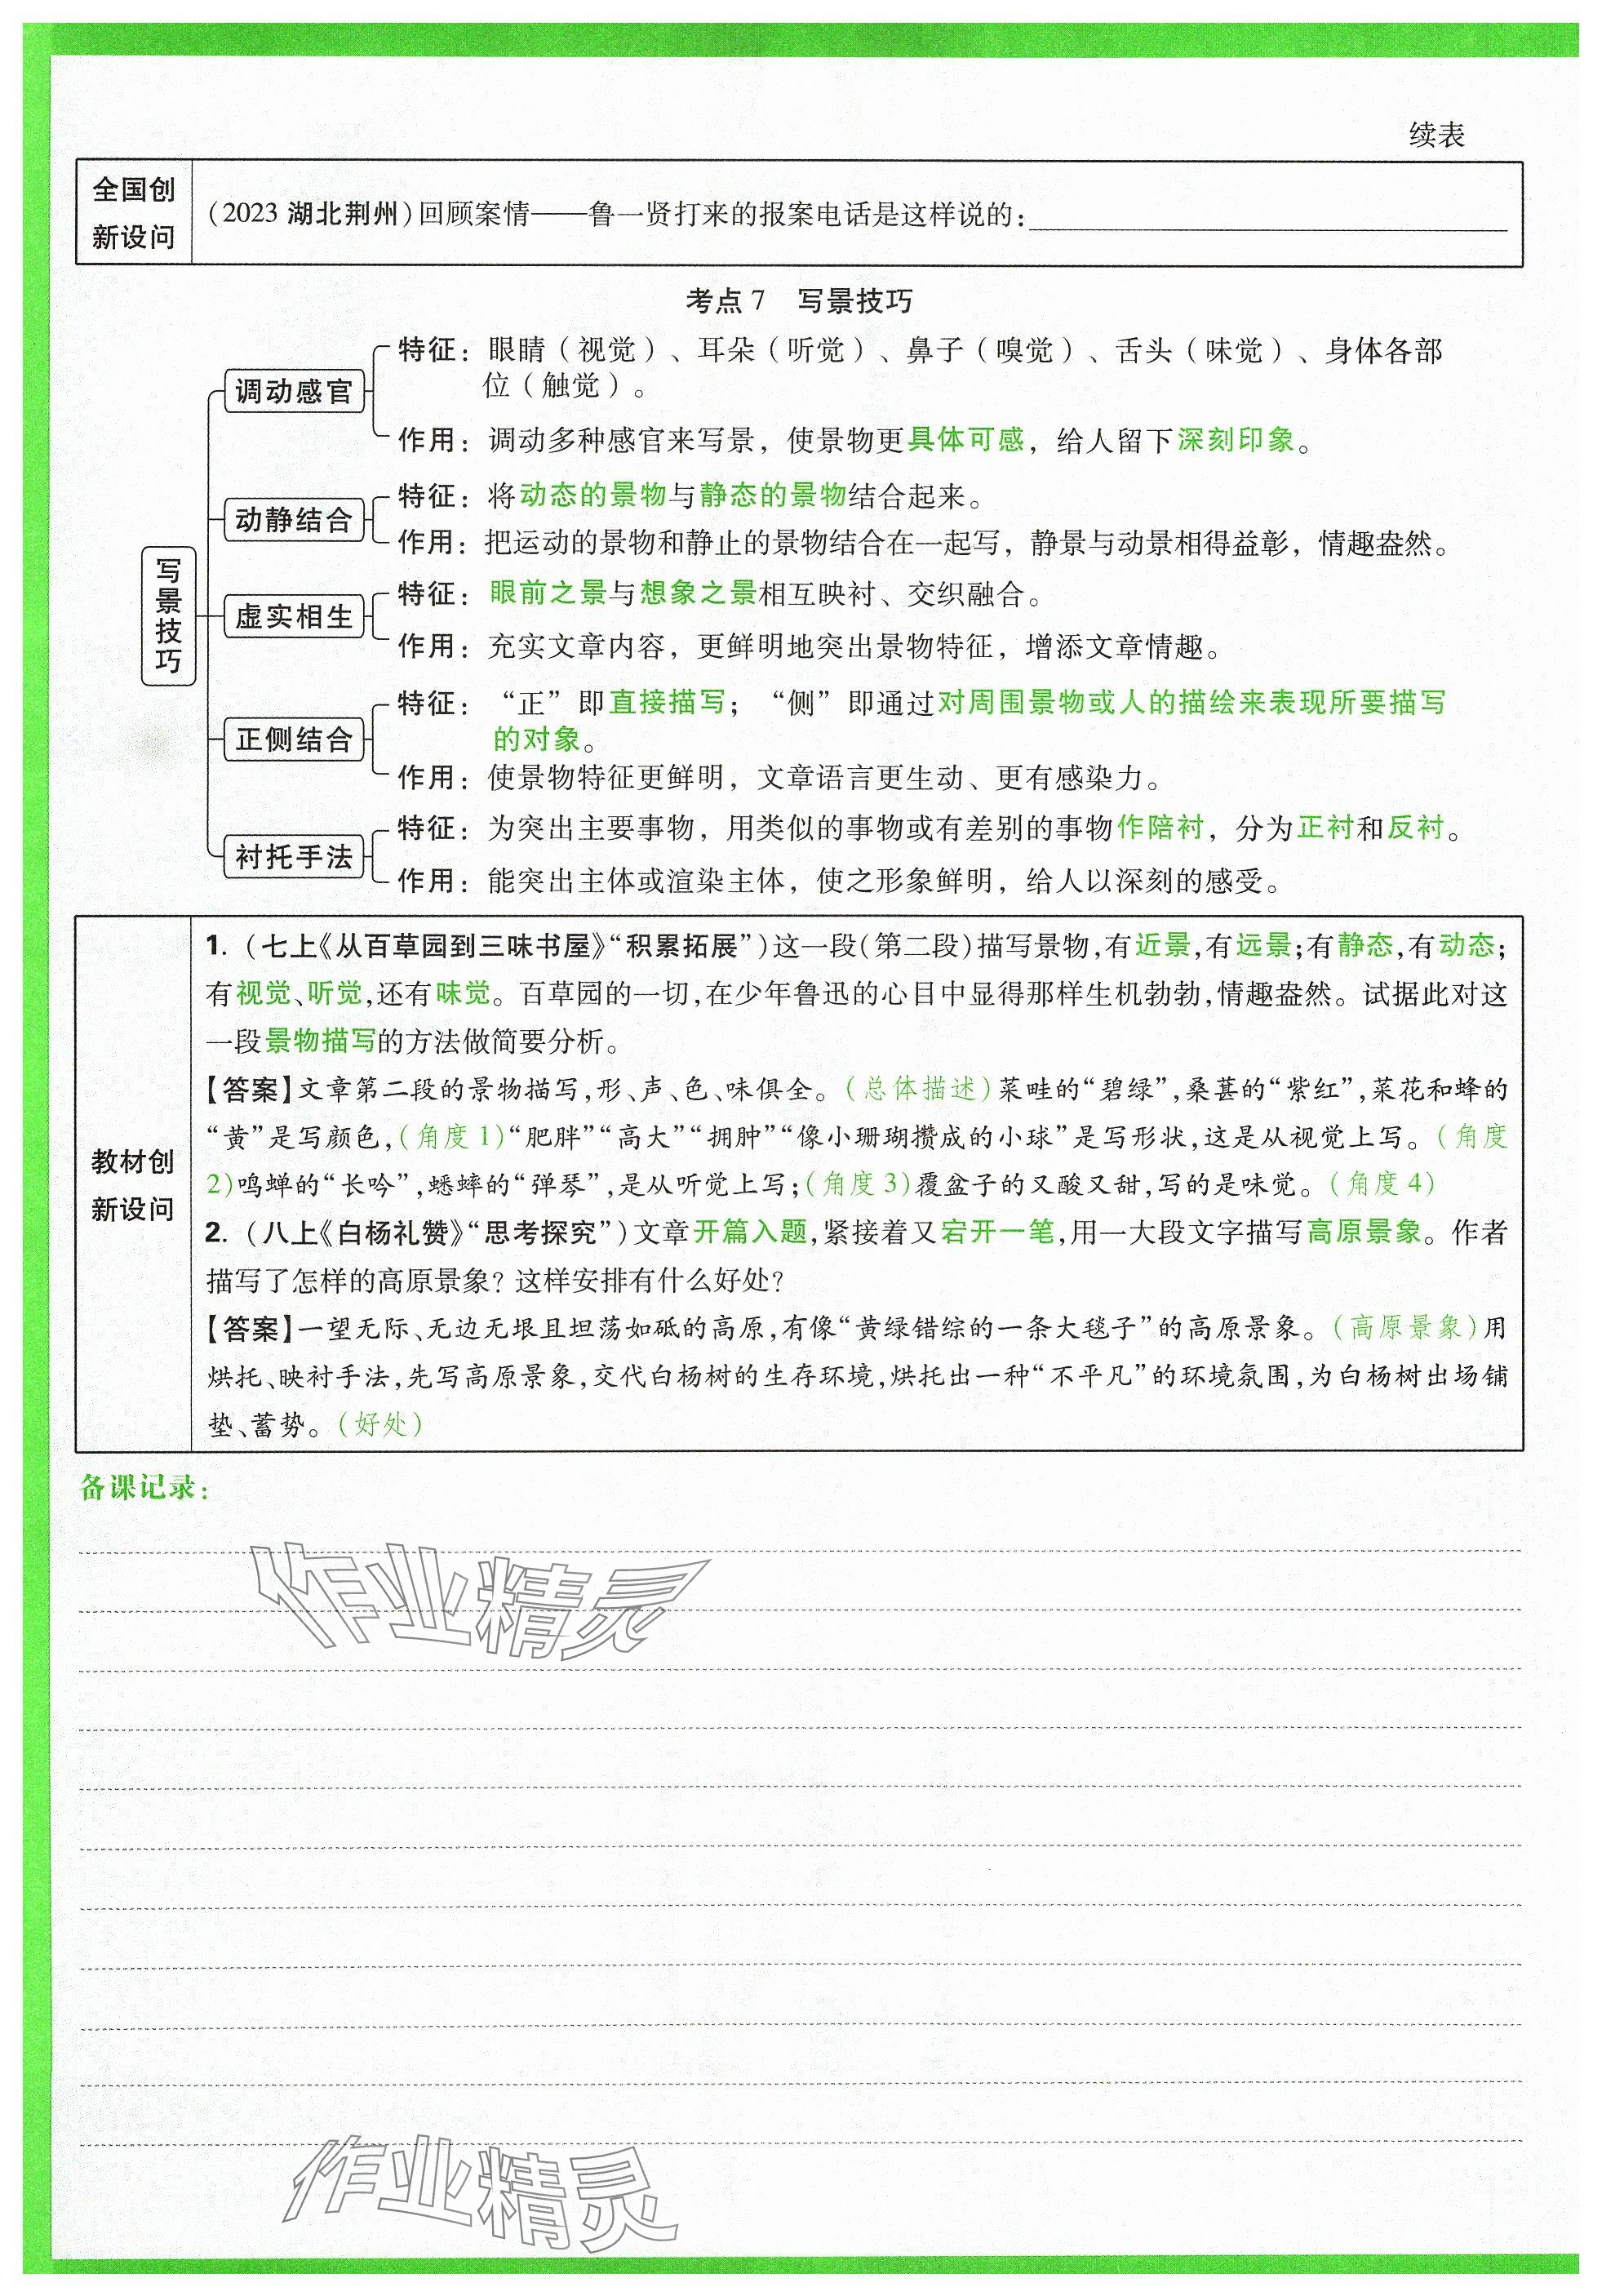 续表
全国创
新设问
（2023 湖北荆州）回顾案情——鲁一贤打来的报案电话是这样说的：
考点 7　写景技巧
写景技巧
调动感官
特征：眼睛（视觉）、耳朵（听觉）、鼻子（嗅觉）、舌头（味觉）、身体各部
位（触觉）。
作用：调动多种感官来写景，使景物更具体可感，给人留下深刻印象。
动静结合
特征：将动态的景物与静态的景物结合起来。
作用：把运动的景物和静止的景物结合在一起写，静景与动景相得益彰，情趣盎然。
虚实相生
特征：眼前之景与想象之景相互映衬、交织融合。
作用：充实文章内容，更鲜明地突出景物特征，增添文章情趣。
正侧结合
特征：“正”即直接描写；“侧”即通过对周围景物或人的描绘来表现所要描写
的对象。
作用：使景物特征更鲜明，文章语言更生动、更有感染力。
衬托手法
特征：为突出主要事物，用类似的事物或有差别的事物作陪衬，分为正衬和反衬。
作用：能突出主体或渲染主体，使之形象鲜明，给人以深刻的感受。
教材创
新设问
1.（七上《从百草园到三味书屋》“积累拓展”）这一段（第二段）描写景物，有近景，有远景；有静态，有动态；
有视觉、听觉，还有味觉。百草园的一切，在少年鲁迅的心目中显得那样生机勃勃，情趣盎然。试据此对这
一段景物描写的方法做简要分析。
【答案】文章第二段的景物描写，形、声、色、味俱全。（总体描述）菜畦的“碧绿”，桑葚的“紫红”，菜花和蜂的
“黄”是写颜色，（角度 1）“肥胖”“高大”“拥肿”“像小珊瑚攒成的小球”是写形状，这是从视觉上写。（角度
2）鸣蝉的“长吟”，蟋蟀的“弹琴”，是从听觉上写；（角度 3）覆盆子的又酸又甜，写的是味觉。（角度 4）
2.（八上《白杨礼赞》“思考探究”）文章开篇入题，紧接着又宕开一笔，用一大段文字描写高原景象。作者
描写了怎样的高原景象？这样安排有什么好处？
【答案】一望无际、无边无垠且坦荡如砥的高原，有像“黄绿错综的一条大毯子”的高原景象。（高原景象）用
烘托、映衬手法，先写高原景象，交代白杨树的生存环境，烘托出一种“不平凡”的环境氛围，为白杨树出场铺
垫、蓄势。（好处）
备课记录：
作业精灵
作业精灵